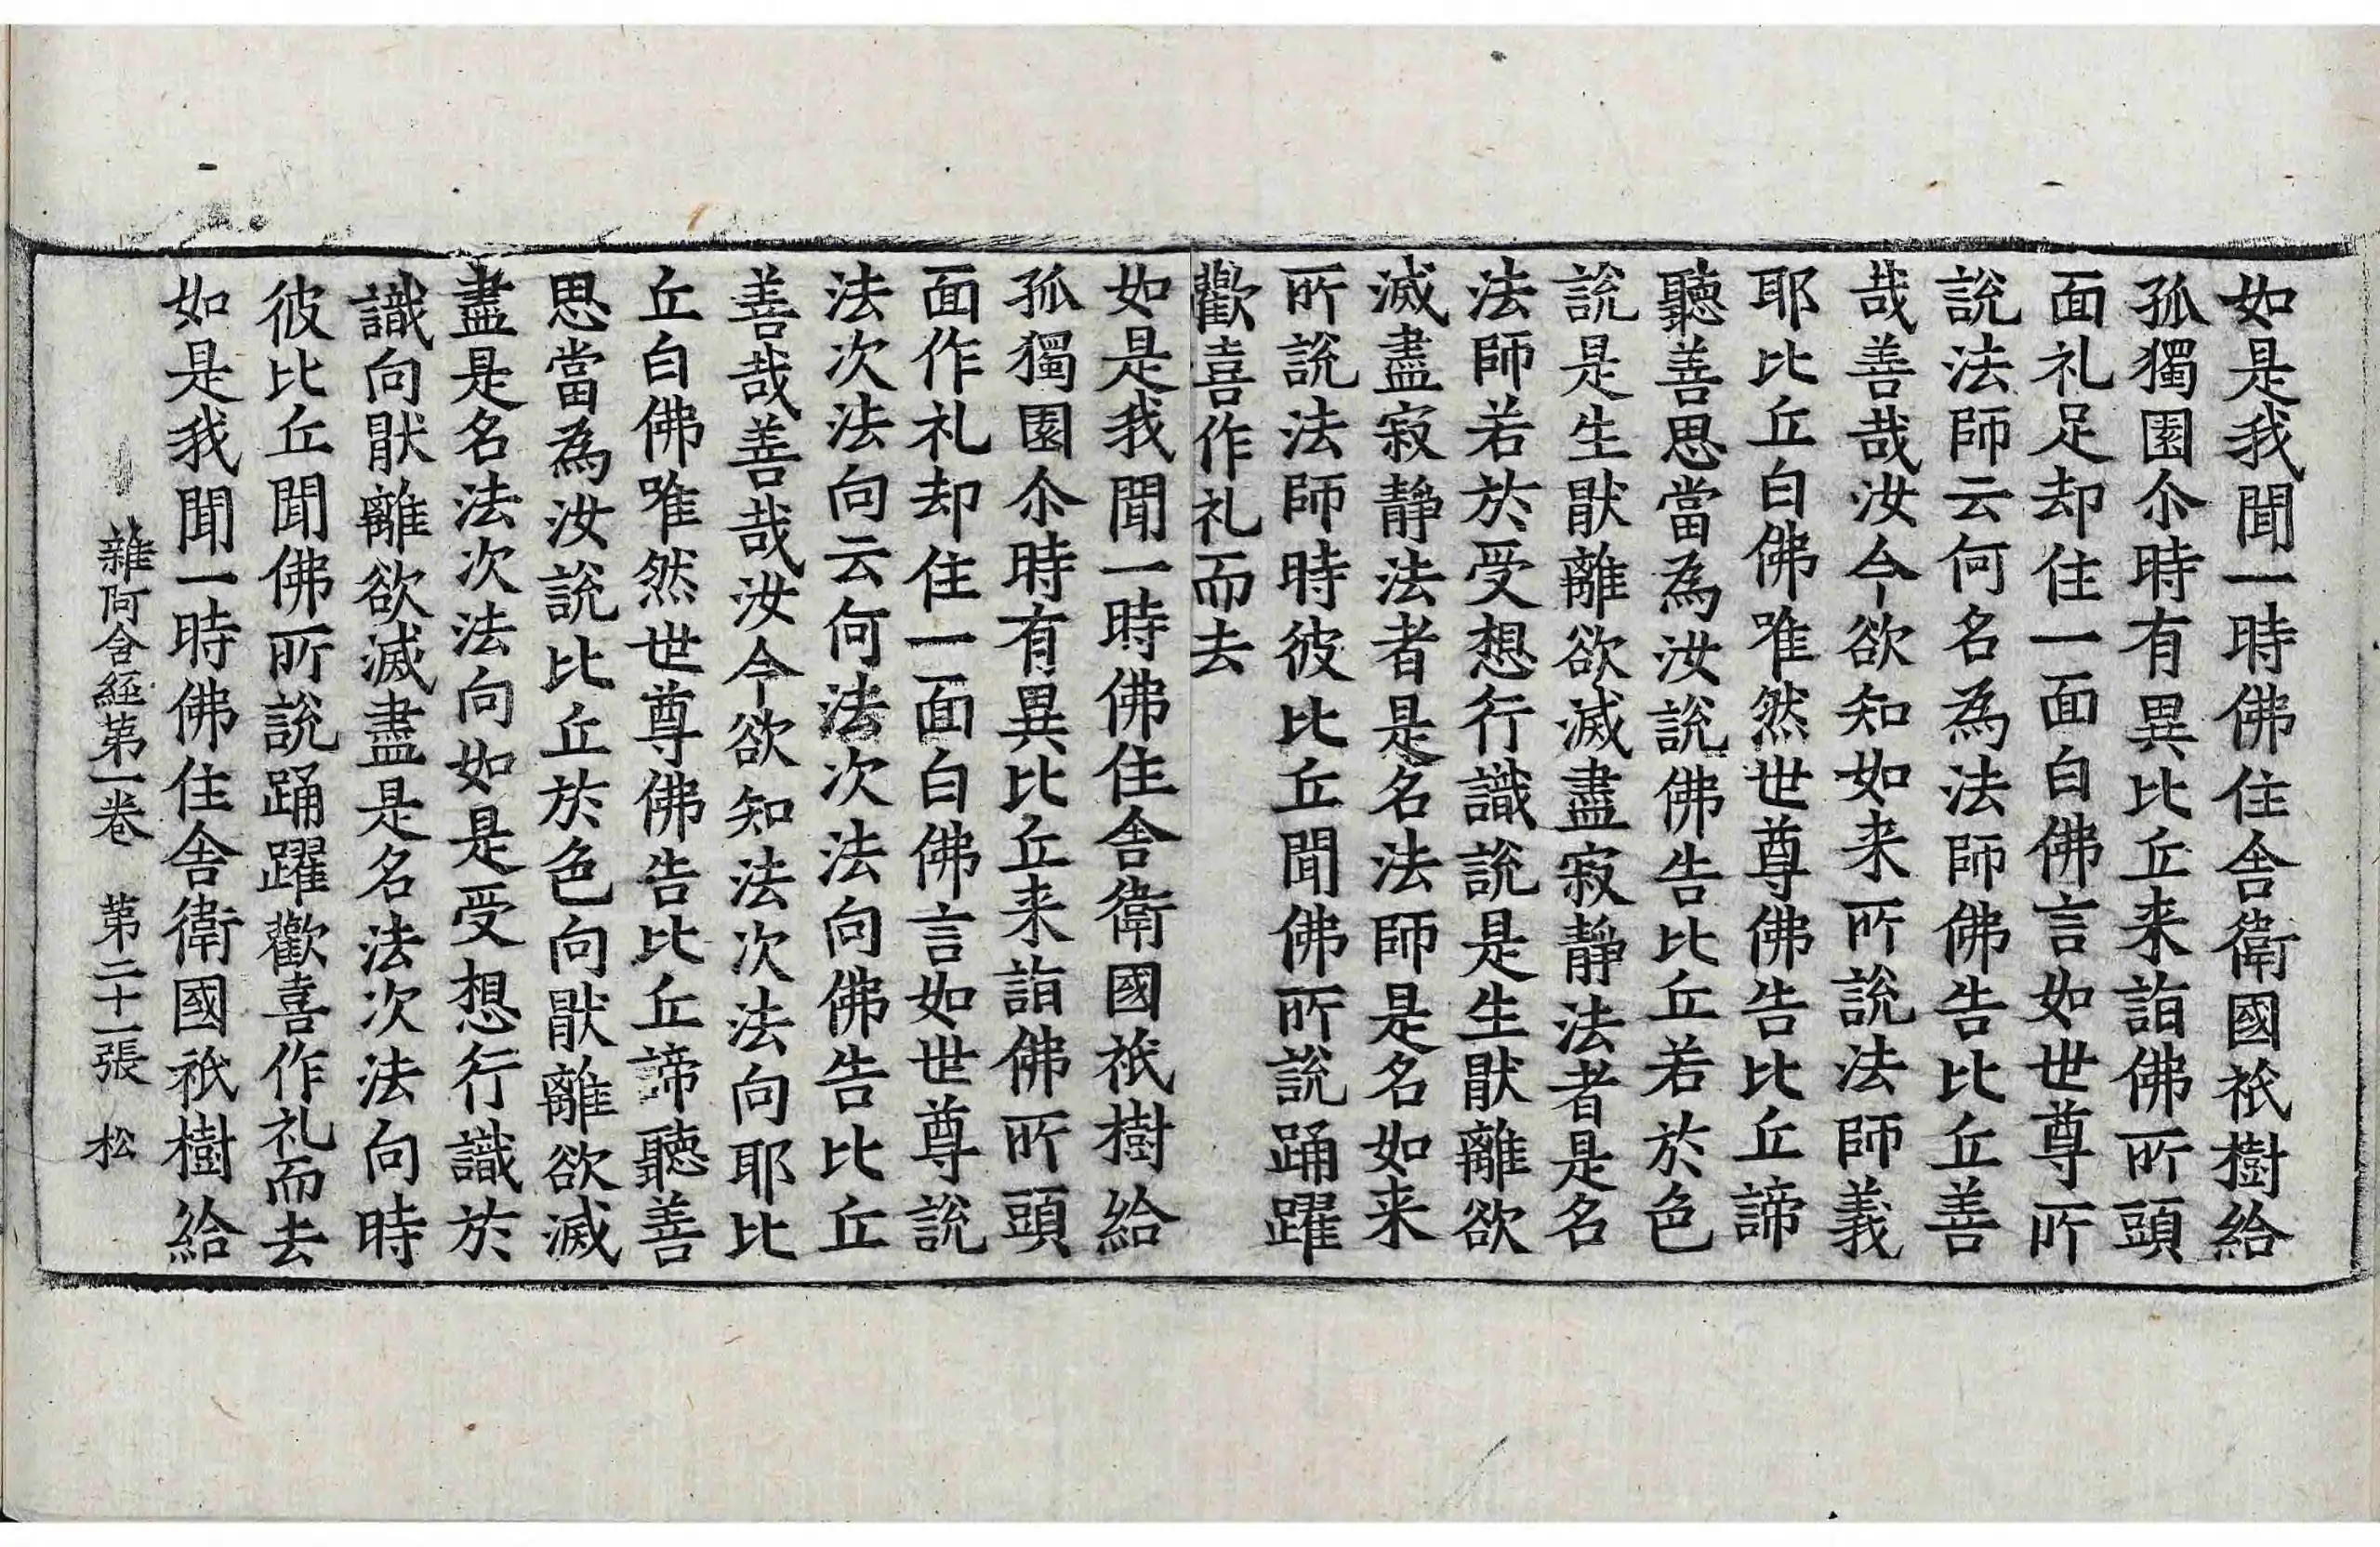 如是我聞一時佛住舍衛國祇樹給
孤獨園尒時有異比丘来詣佛所頭
面礼足却住一面白佛言如世尊所
說法師云何名為法師佛告比丘善
哉善哉汝今欲知如来所說法師義
耶比丘白佛唯然世尊佛告比丘諦
聽善思當為汝說佛告比丘若於色
說是生猒離欲滅盡寂靜法者是名
法師若於受想行識說是生猒離欲
滅盡寂靜法者是名法師是名如来
所說法師時彼比丘聞佛所說踊躍
歡喜作礼而去
如是我聞一時佛住舍衛國祇樹給
孤獨園尒時有異比丘来詣佛所頭
面作礼却住一面白佛言如世尊說
法次法向云何法次法向佛告比丘
善哉善哉汝今欲知法次法向耶比
丘白佛唯然世尊佛告比丘諦聽善
思當為汝說比丘於色向猒離欲滅
盡是名法次法向如是受想行識於
識向猒離欲滅盡是名法次法向時
彼比丘聞佛所說踊躍歡喜作礼而去
如是我聞一時佛住舍衛國祇樹給
雜阿含經第一卷 第二十一張 松